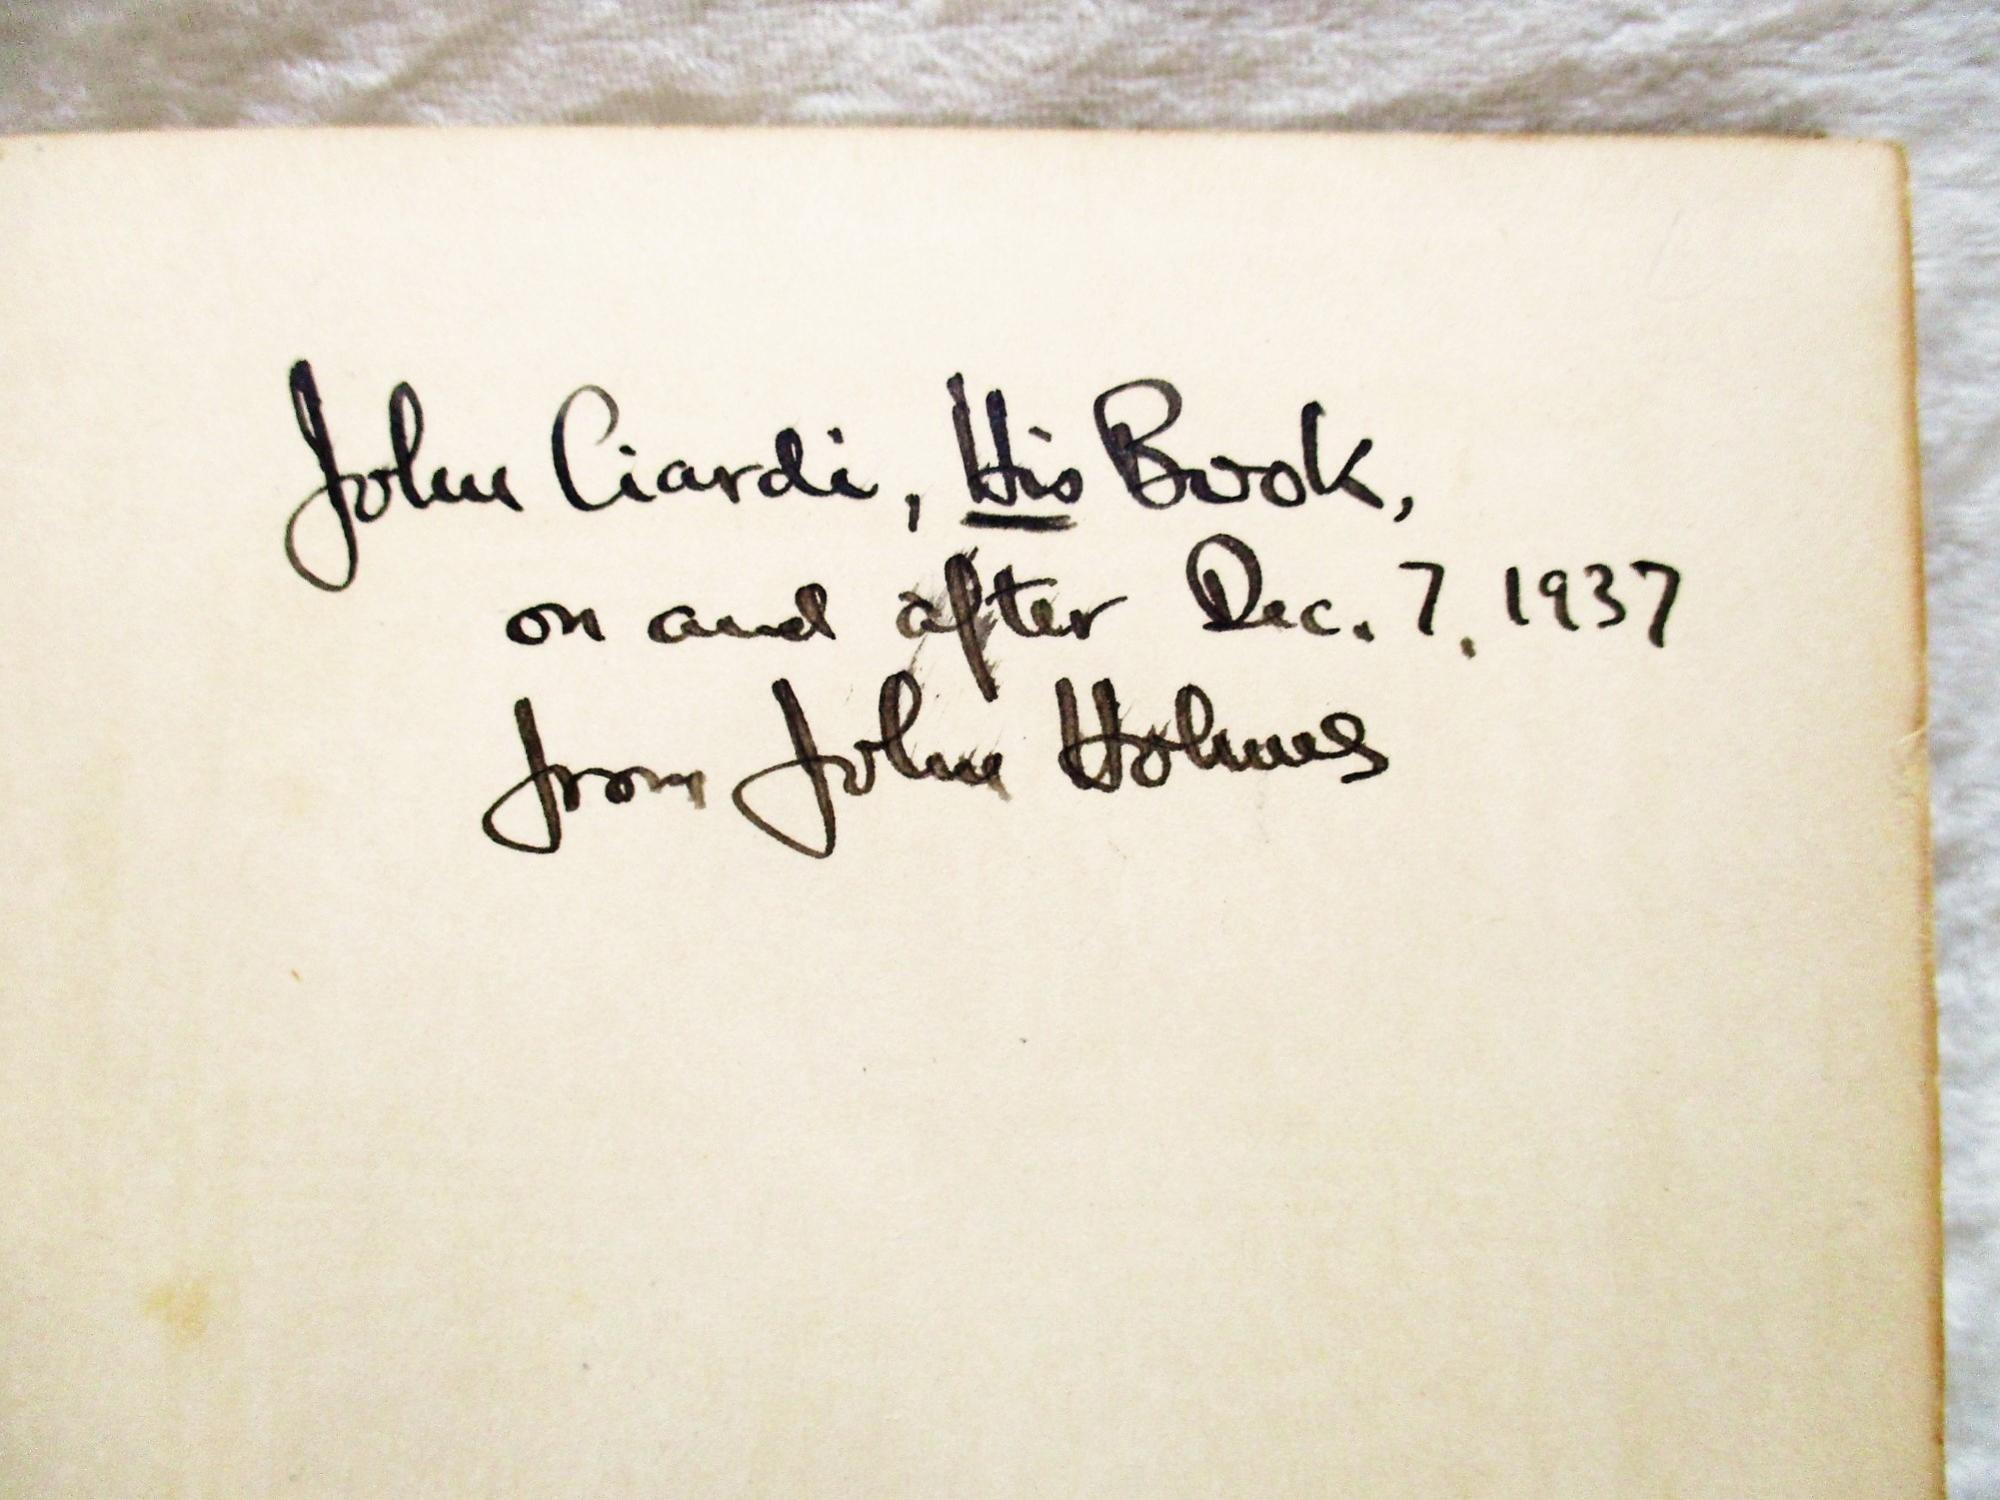 John Ciardi, His Book,
on and after Dec. 7, 1937
from John Holmes